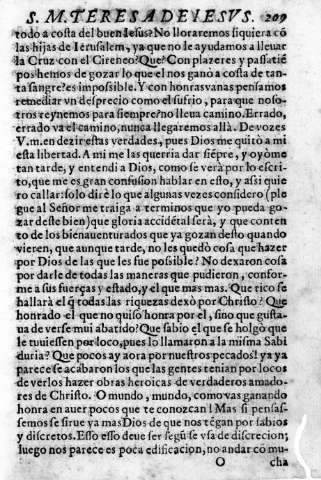 S. M. TERESA DE IESVS. 209
todo a costa del buen Iesus? No lloraremos siquiera cõ
las hijas de Ierusalem, ya que no le ayudamos a lleuar
la Cruz con el Cireneo? Que con plazeres y passatiẽ
pos hemos de gozar lo que el nos ganò a costa de tan-
ta sangre? es impossible. Y con honras vanas pensamos
remediar vn desprecio como el sufrio, para que noso-
tros reynemos para siempre? no lleua camino. Errado,
errado va el camino, nunca llegaremos allà. De vozes
V. m. en dezir estas verdades, pues Dios me quitò a mi
esta libertad. A mi me las querria dar siẽpre, y oyòme
tan tarde, y entendi a Dios, como se verà por lo escri-
to, que me es gran confusion hablar en esto, y assi quie
ro callar: solo dirè lo que algunas vezes considero (ple
gue al Señor me traiga a terminos que yo pueda go-
zar deste bien) que gloria accidẽtal serà, y que conten
to de los bienauenturados que ya gozan desto quando
vieren, que aunque tarde, no les quedò cosa que hazer
por Dios de las que les fue possible? No dexaron cosa
por darle de todas las maneras que pudieron, confor-
me a sus fuerças y estado, y el que mas mas. Que rico se
hallarà el q̃ todas las riquezas dexò por Christo? Que
honrado el que no quiso honra por el, sino que gusta-
ua de verse mui abatido? Que sabio el que se holgò que
le tuuiessen por loco, pues lo llamaron a la misma Sabi
duria? Que pocos ay aora por nuestros pecados! ya ya
parece se acabaron los que las gentes tenian por locos
de verlos hazer obras heroicas de verdaderos amado-
res de Christo. O mundo, mundo, como vas ganando
honra en auer pocos que te conozcan! Mas si pensas-
semos se sirue ya mas Dios de que nos tẽgan por sabios
y discretos. Esso esso deue ser segũ se vsa de discrecion;
luego nos parece es poca edificacion, no andar cõ mu-
O cha